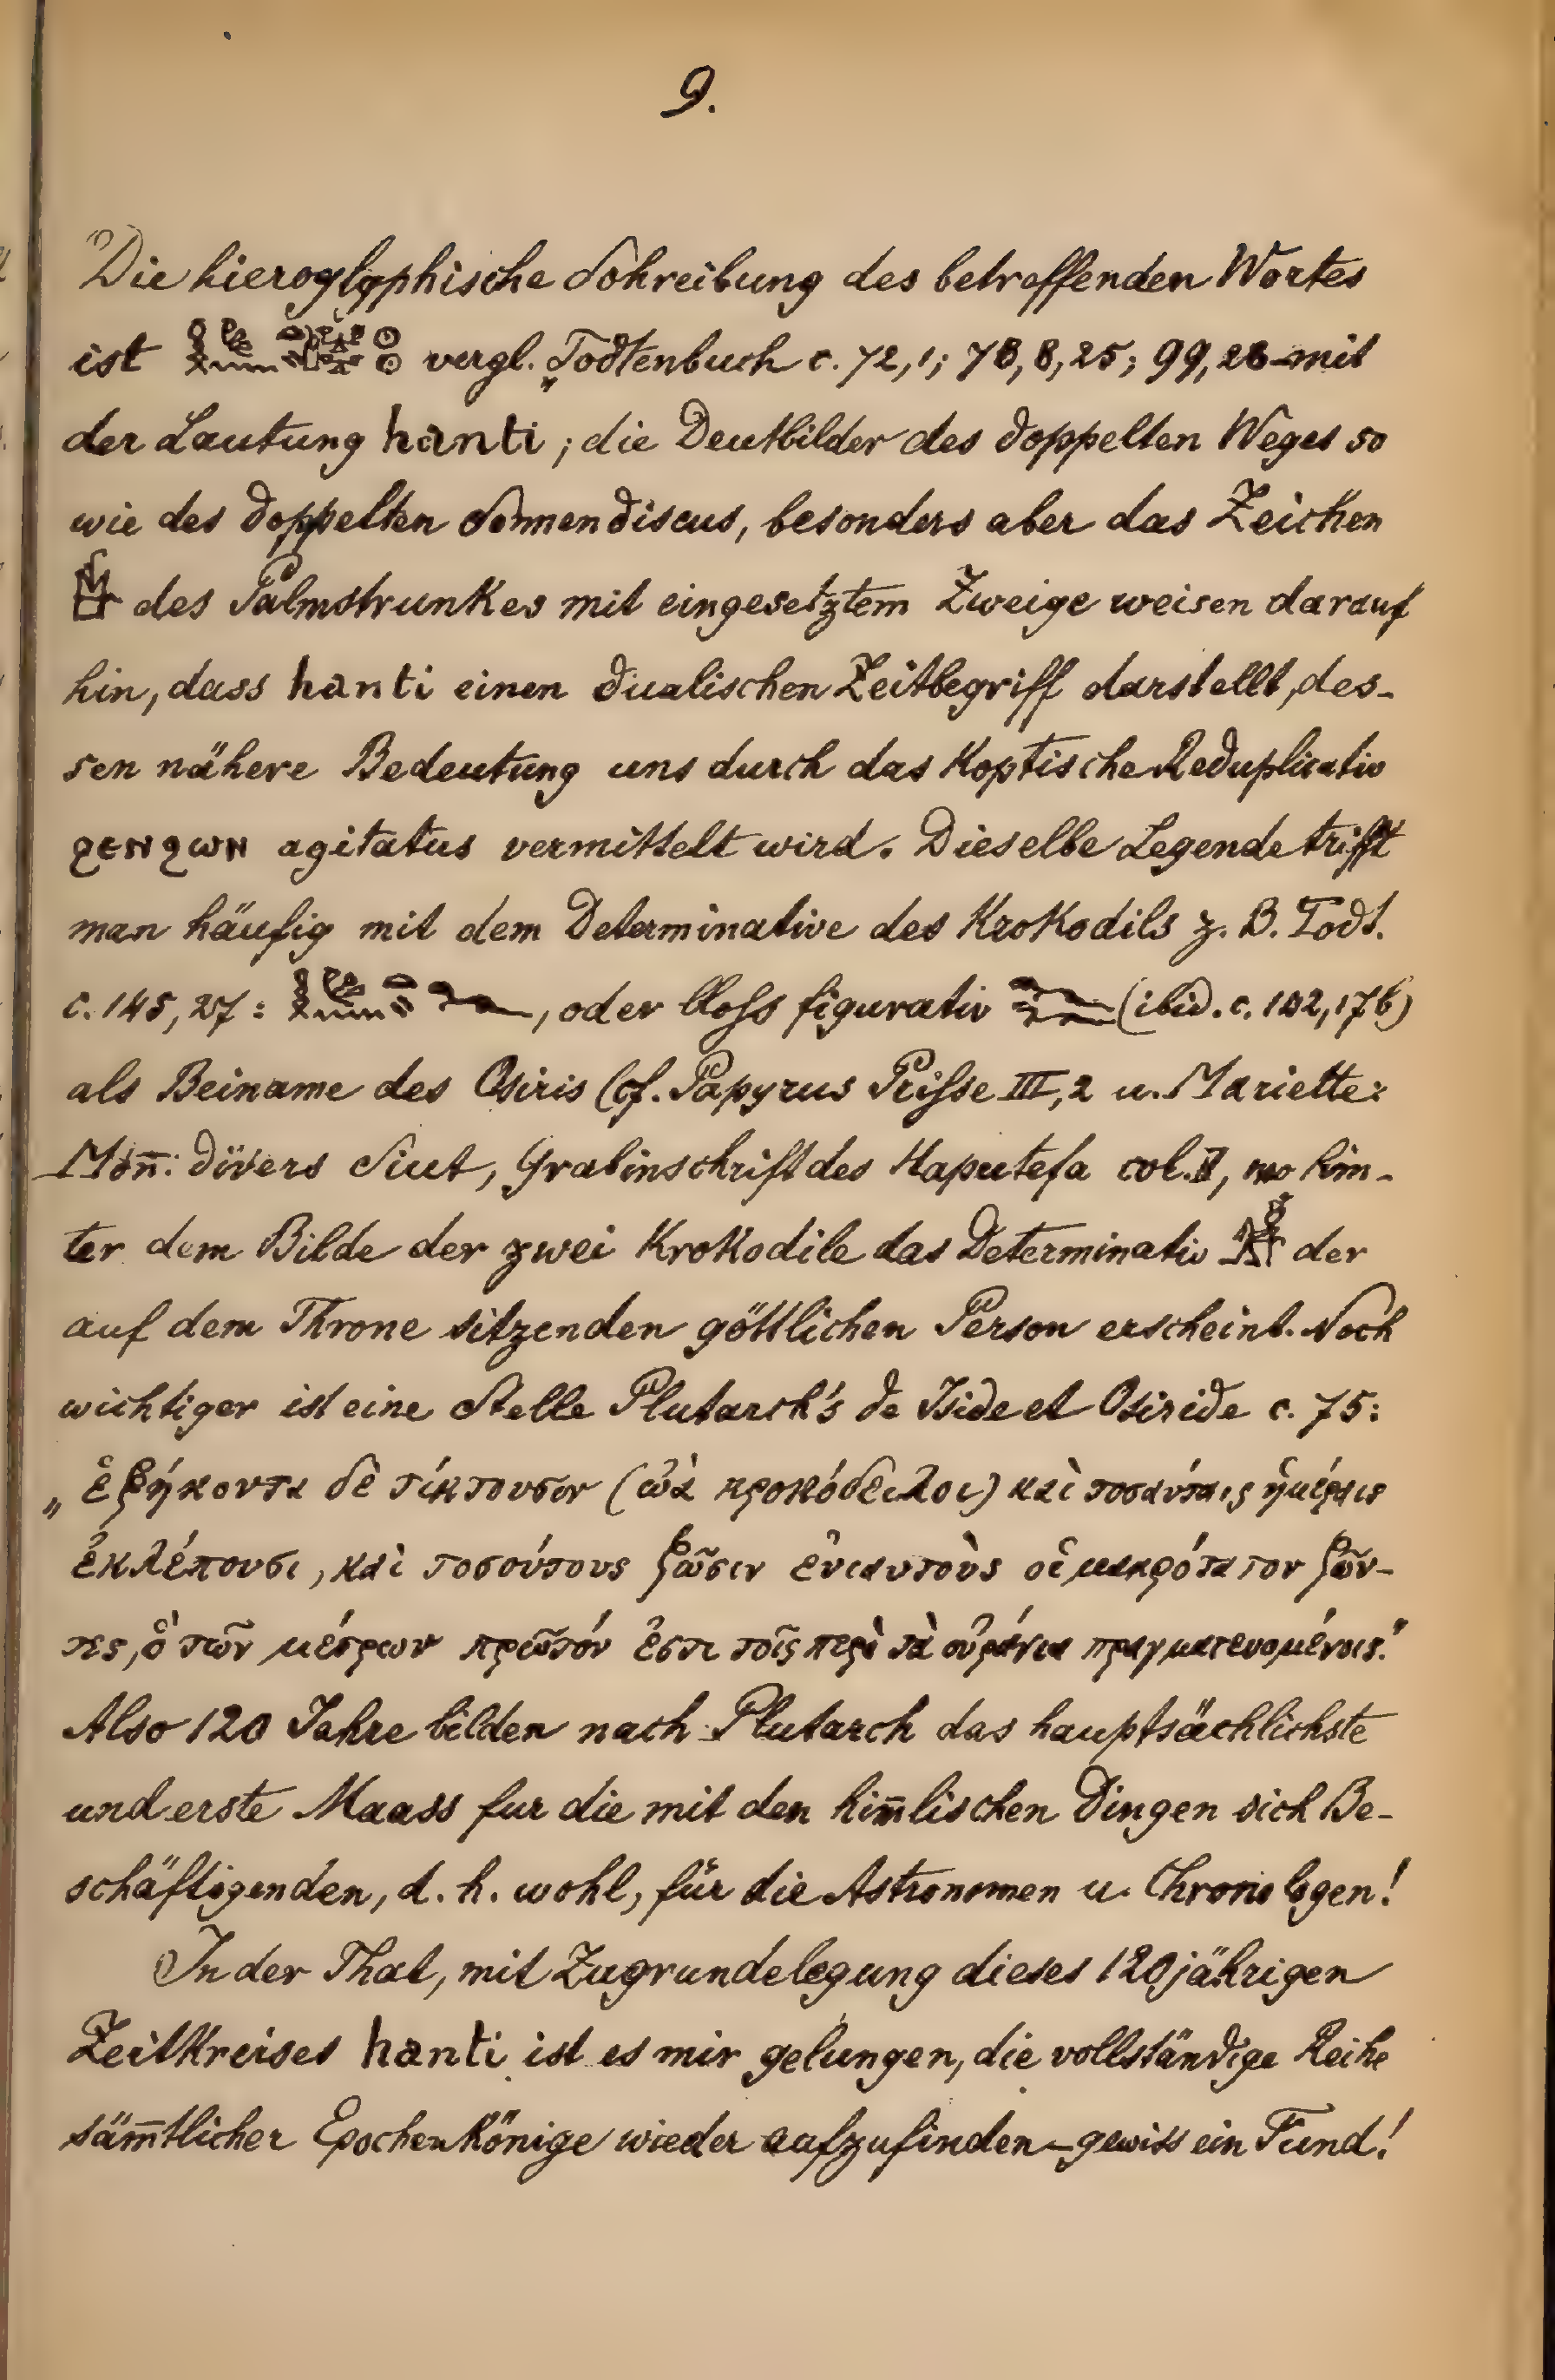 9.
"Die hieroglyphische Schreibung des betreffenden Wortes
ist vergl. „Todtenbuch c. 72,1; 78, 8, 25; 99, 28 – mit
der Lautung hanti; die Deutbilder des doppelten Weges so
wie des doppelten Sonnendiscus, besonders aber das Zeichen
des Palmstrunkes mit eingesetztem Zweige weisen darauf
hin, dass hanti einen dualischen Zeitbegriff darstellt, des-
sen nähere Bedeutung uns durch das Koptische Reduplicativ
ϩⲉⲛϩⲱⲛ agitatus vermittelt wird. Dieselbe Legende trifft
man häufig mit dem Determinative des Krokodils z. B. Todt.
c. 145, 27: , oder bloss figurativ (ibid. c. 142, 17b)
als Beiname des Osiris (cf. Papyrus Prisse III, 2 u. Mariette:
Mon̅: divers Siut, Grabinschrift des Haputefa col. , wo hin-
ter dem Bilde der zwei Krokodile das Determinativ der
auf dem Throne sitzenden göttlichen Person erscheint. Noch
wichtiger ist eine Stelle Plutarch's de Iside et Osiride c. 75:
„ ἑξήκοντα δὲ τίκτουσιν (ὠὰ κροκόδειλοι) καὶ τοσαύταις ἡμέραις
ἐκλέπουσι, καὶ τοσούτους ζῶσιν ἐνιαυτοὺς οἱ μακρότατον ζῶν-
τες, ὃ τῶν μέτρων πρῶτόν ἐστι τοῖς περὶ τὰ οὐράνια πραγματευομένοις."
Also 120 Jahre bilden nach Plutarch das hauptsächlichste
und erste Maass fur die mit den him̅lischen Dingen sich Be-
schäftigenden, d. h. wohl, für die Astronomen u. Chronologen!
In der That, mit Zugrundelegung dieses 120jährigen
Zeitkreises hanti ist es mir gelungen, die vollständige Reihe
säm̅tlicher Epochenkönige wieder aufzufinden – gewiss ein Fund!